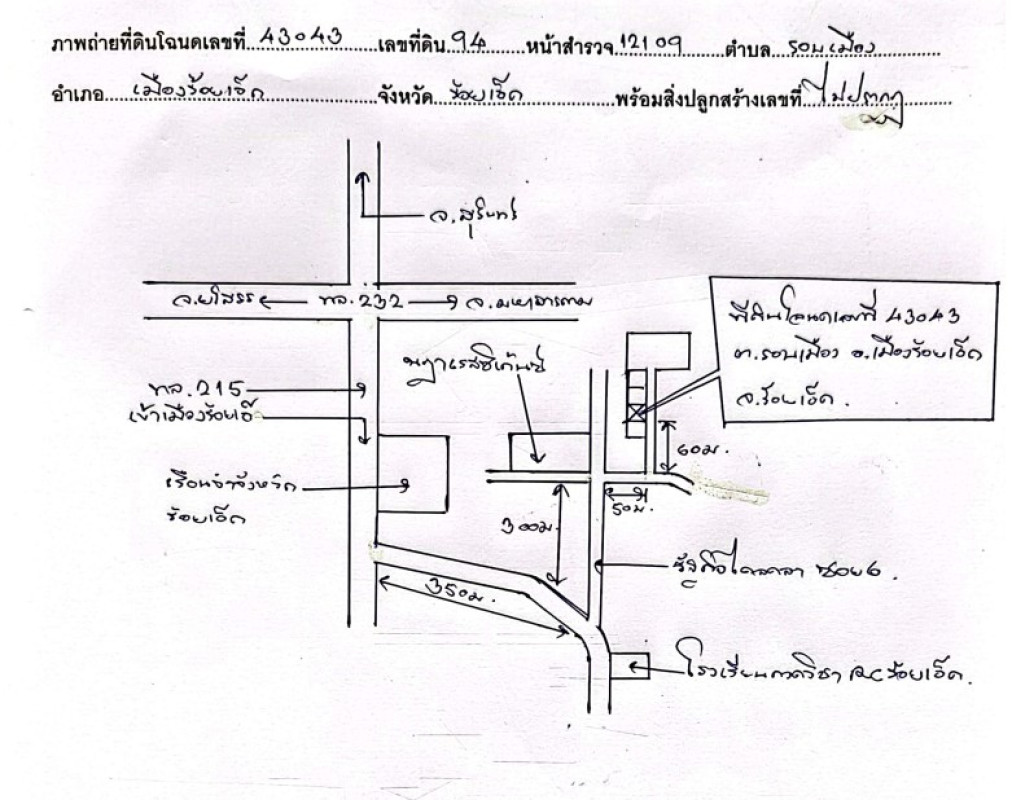 ภาพถ่ายที่ดินโฉนดเลขที่ 43043 เลขที่ดิน 94 หน้าสำรวจ 12109 ตำบล รอบเมือง
อำเภอ เมืองร้อยเอ็ด จังหวัด ร้อยเอ็ด พร้อมสิ่งปลูกสร้างเลขที่ ไม่ปรากฏ
จ.สุรินทร์
จ.ยโสธร ทล.232 จ.มหาสารคาม
ที่ดินโฉนดเลขที่ 43043
ต.รอบเมือง อ.เมืองร้อยเอ็ด
จ.ร้อยเอ็ด.
ทล.215
เข้าเมืองร้อยเอ็
60ม.
เรือนจำจังหวัด
ร้อยเอ็ด
50ม.
300ม.
ซอย 6.
350ม.
โรงเรียนกวดวิชา ร้อยเอ็ด.